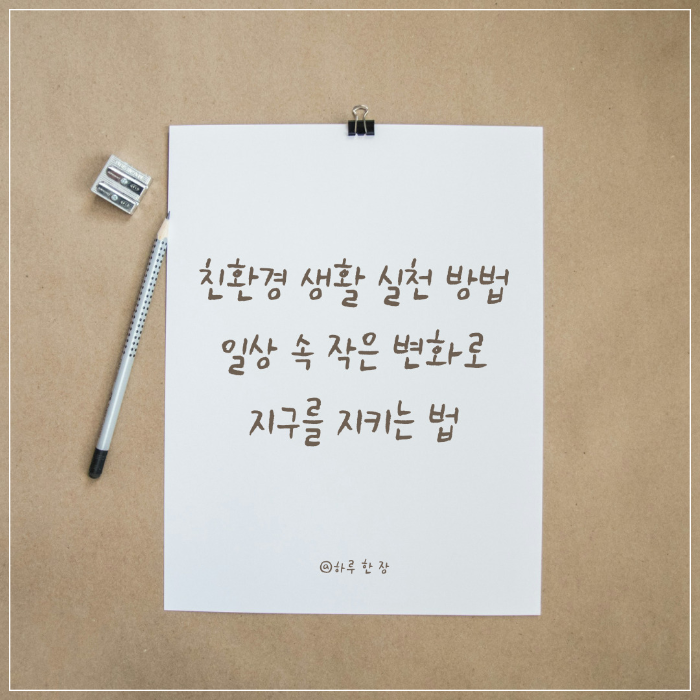 친환경 생활 실천 방법
일상 속 작은 변화로
지구를 지키는 법
@하루 한 장